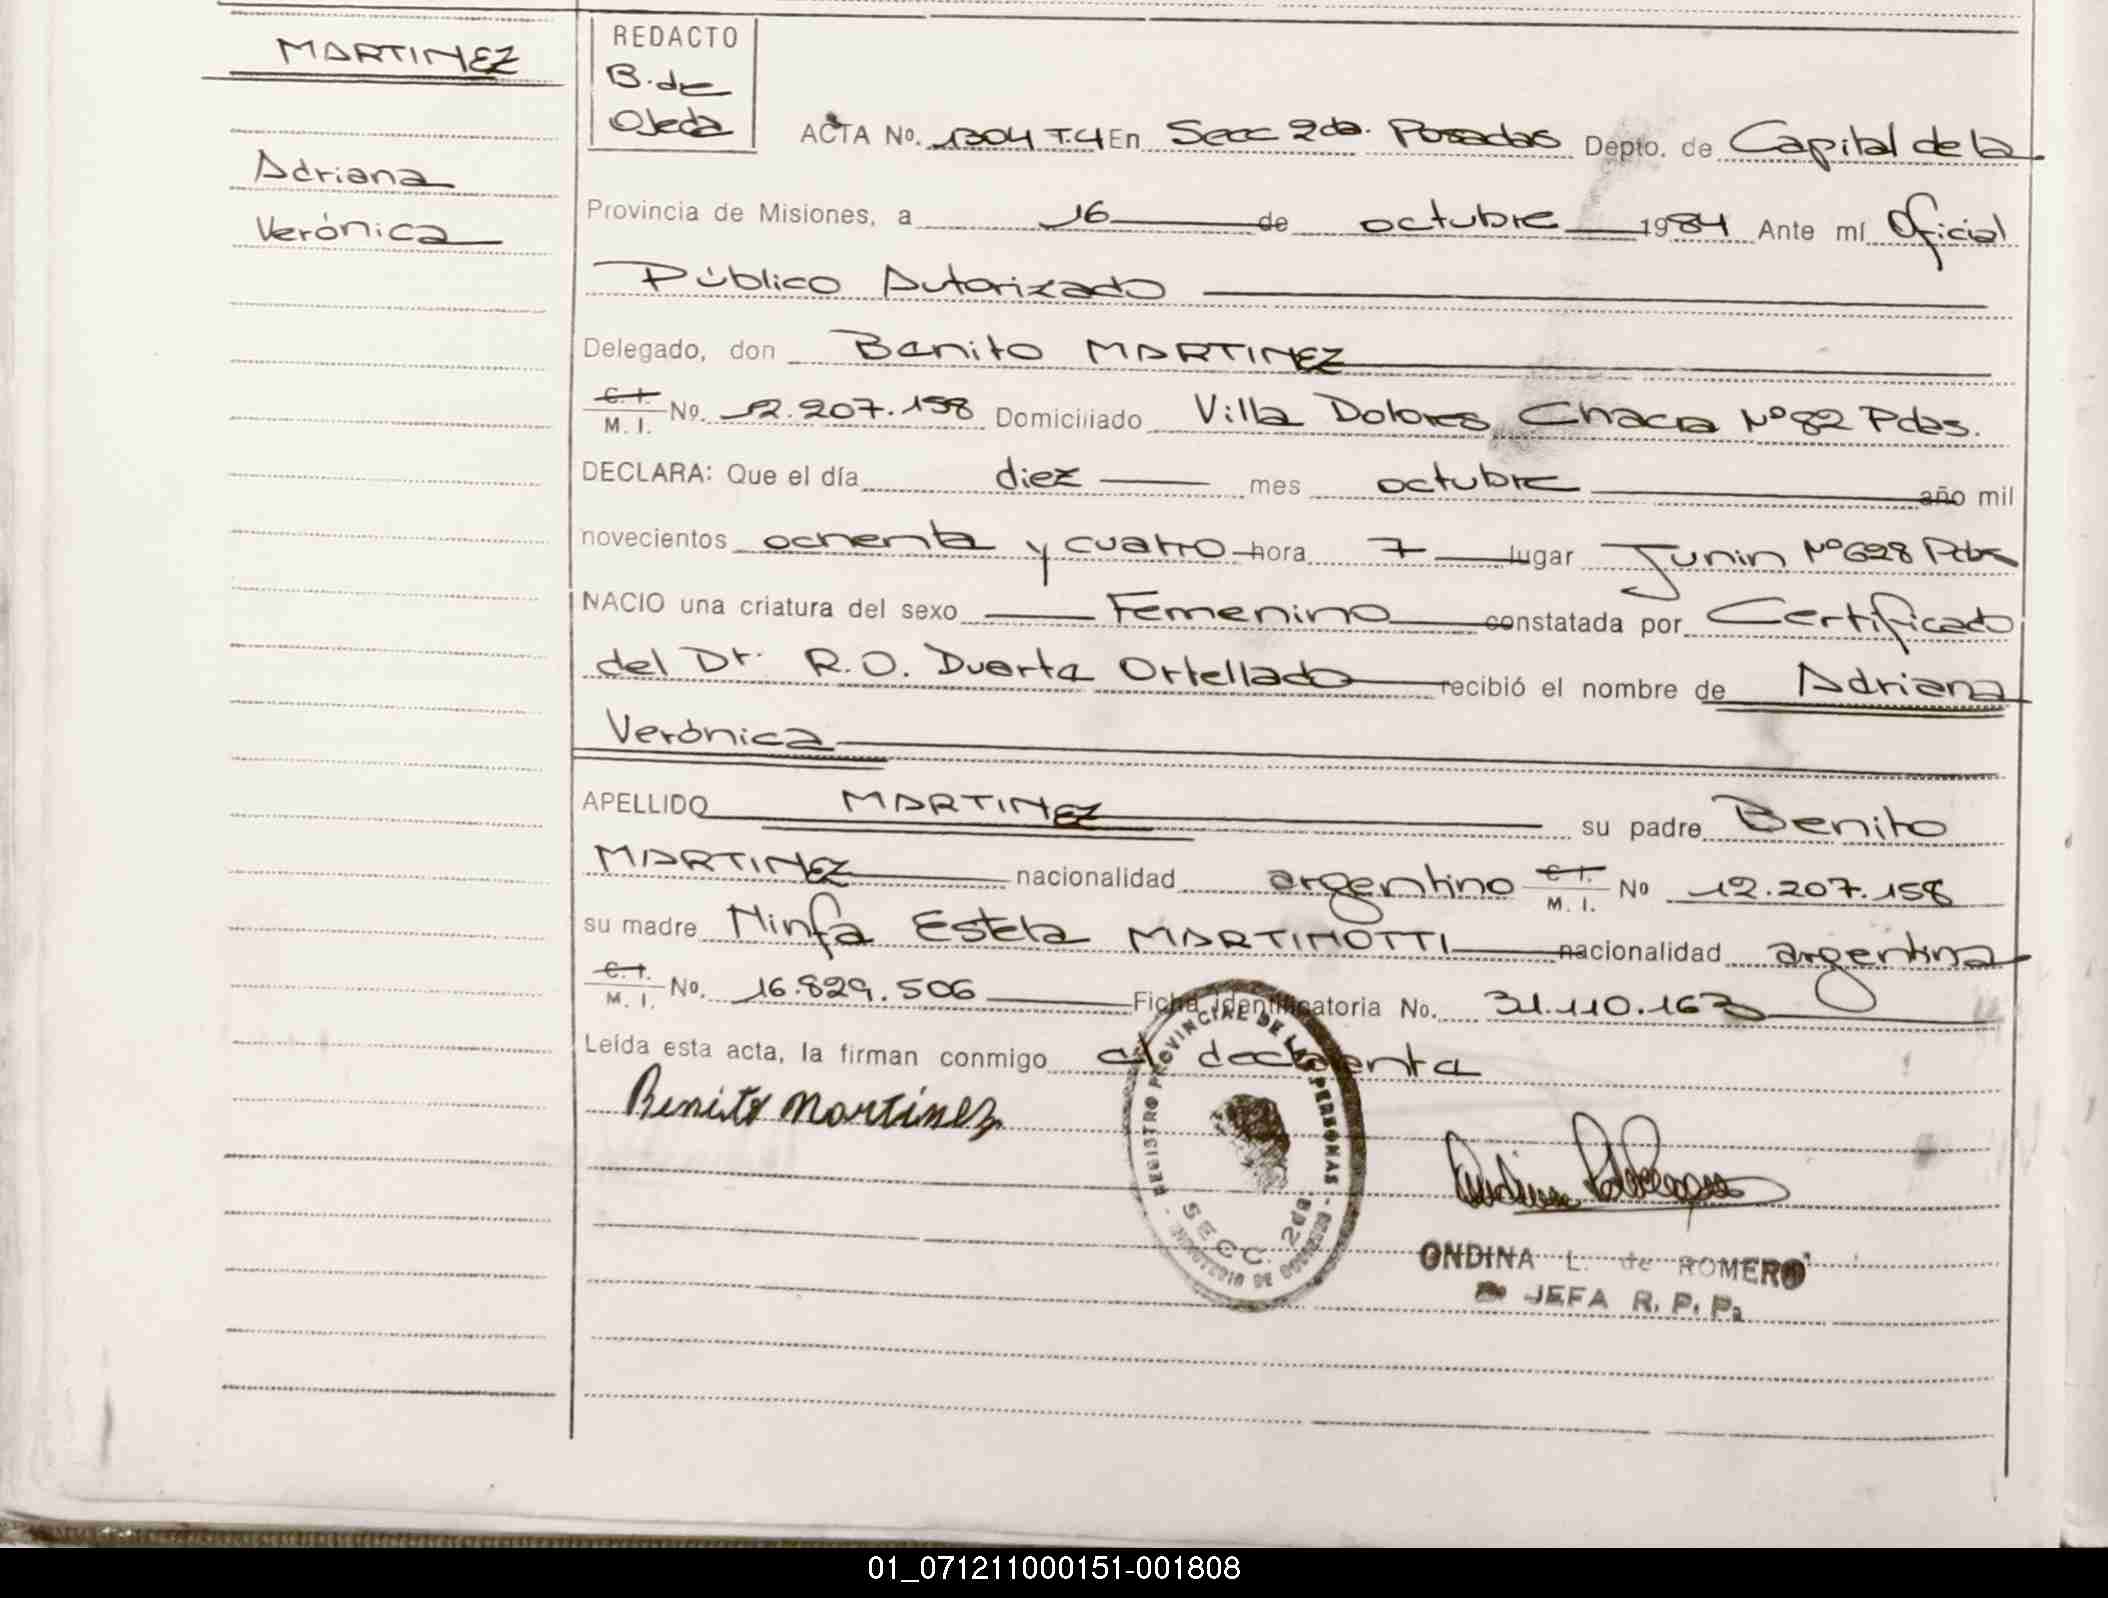 MARTINEZ
Adriana
Verónica
REDACTO
B. de
Ojeda
ACTA Nº. 1304 T.4 En Secc 2da. Posadas Depto. de Capital de la
Provincia de Misiones, a 16 de octubre 1984 Ante mí Oficial
Público Autorizado
Delegado, don Benito MARTINEZ
C. I.
M. I. Nº. 12.207.158 Domiciliado Villa Dolores Chacra Nº 82 Pdas.
DECLARA: Que el día diez mes octubre año mil
novecientos ochenta y cuatro hora 7 lugar Junin Nº 628 Pdas
NACIO una criatura del sexo Femenino constatada por Certificado
del Dr. R.O. Duarte Ortellado recibió el nombre de Adriana
Verónica
APELLIDO MARTINEZ su padre Benito
MARTINEZ nacionalidad argentino C. I.
M. I. Nº 12.207.158
su madre Ninfa Estela MARTINOTTI nacionalidad argentina
C. I.
M. I. Nº. 16.829.506 Ficha Identificatoria No. 31.110.163
Leída esta acta, la firman conmigo el declarente
Benito Martínez
REGISTRO PROVINCIAL DE LAS PERSONAS
SECC. 2da.
ONDINA L. de ROMERO
JEFA R. P. P.
01_071211000151-001808